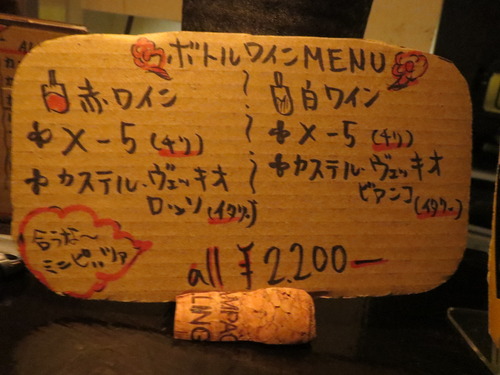 ボトルワインMENU
赤ワイン
メー5(チリ)
カステル・ヴェッキオ
ロッソ(イタリー)
白ワイン
メー5(チリ)
カステル・ヴェッキオ
ビアンコ(イタリー)
合うな〜
ミニピッツァ
all ¥2.200ー
MPAG
LING